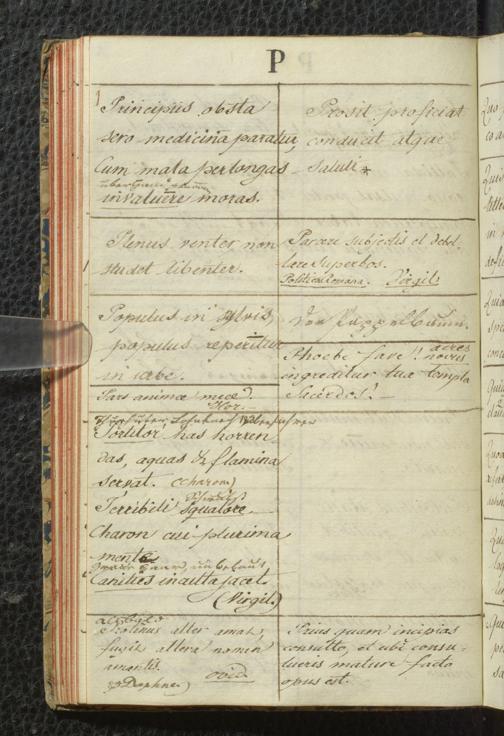 P
Principiis obsta
sero medicina paratur
Cum mala per longas
invaluere moras.
Prosit proficiat
conducit atque
Saluti *
Plenus venter non
studet libenter.
Parcere subjectis et debel-
lare Superbos.
Politica Romana. Virgil.
Populus in sylvis,
populus reperitur
in urbe.
Pars animae meae.
Hor.
Phoebe fave! novus
ingreditur tua templa
Sacerdos!
Portitor has horren
das, aquas & flumina
servat. (Charon)
Terribili squalore
Charon cui plurima
mento
Canities inculta jacet
(Virgil.)
Protinus alter amat,
fugit altera nomen
amantis.
Daphne) ovid.
Prius quam incipias
consulto, et ubi consu-
lueris mature facto
opus est.